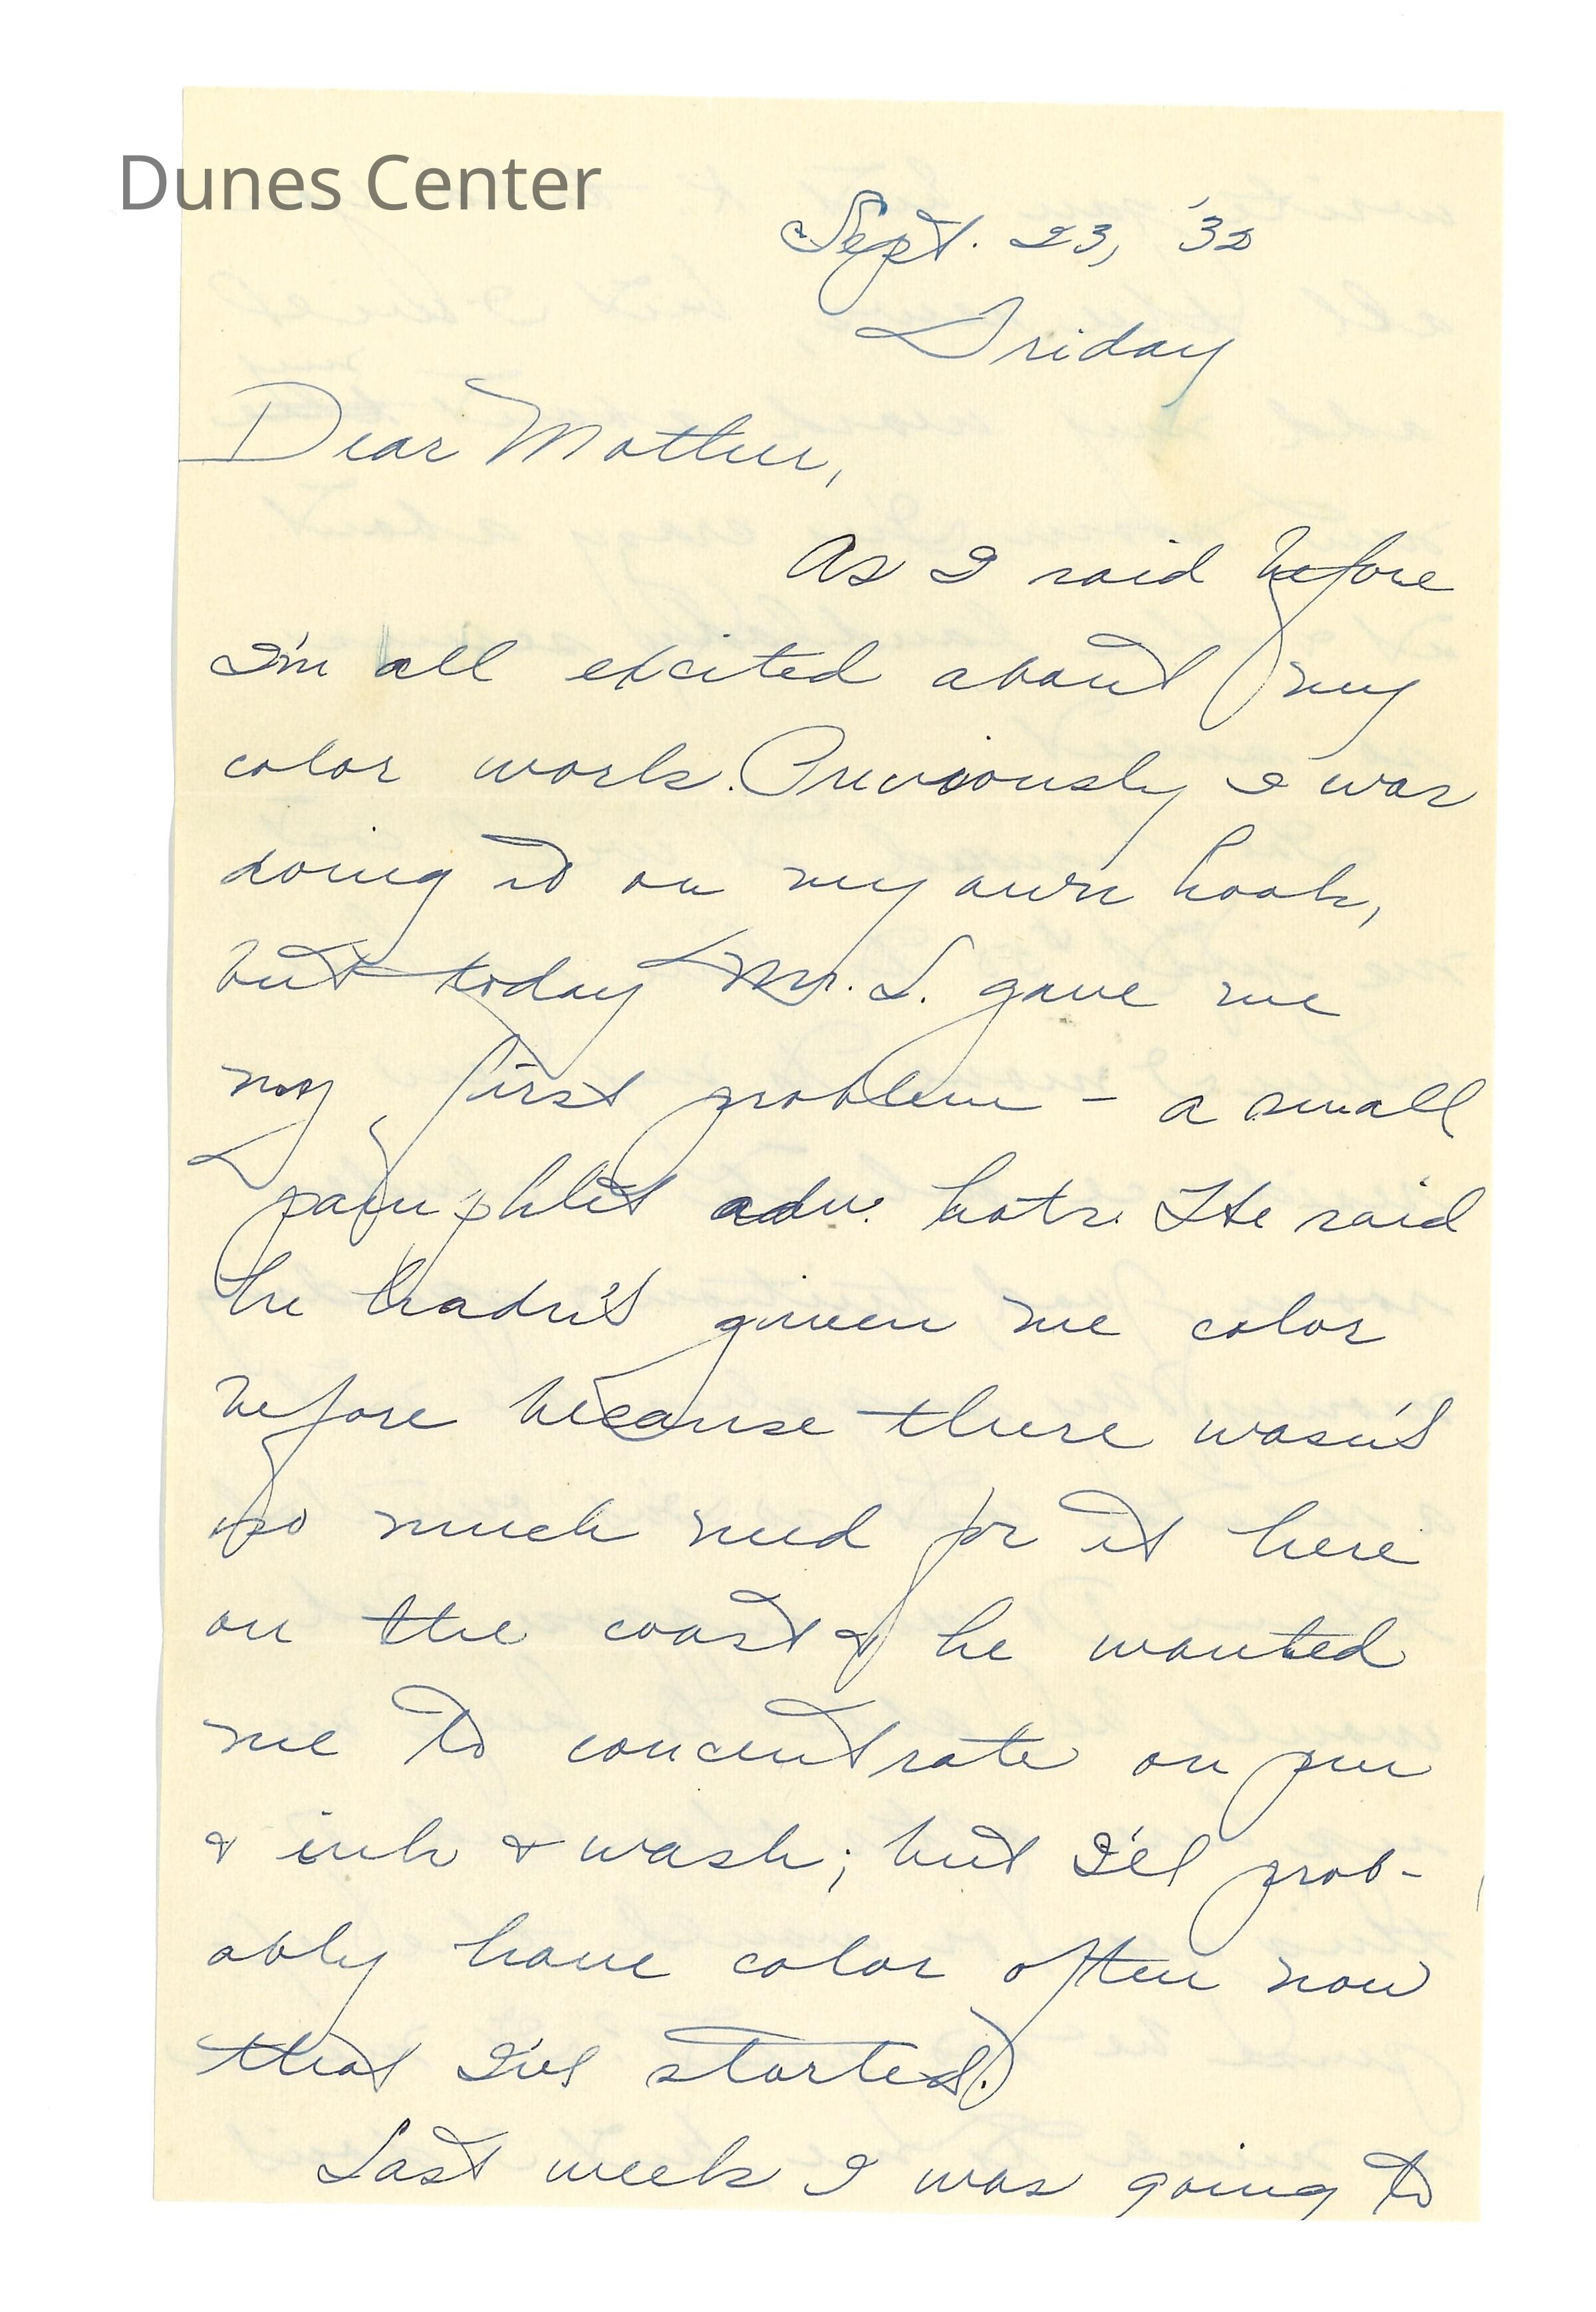 Dunes Center
Sept. 23, '32
Friday
Dear Mother,
As I said before
I'm all excited about my
color work. Previously I was
doing it on my own hook,
but today Mr. L. gave me
my first problem – a small
pamphlet adv. hats. He said
he hadn't given me color
before because there wasn't
so much need for it here
on the coast & he wanted
me to concentrate on pen
& ink & wash; but I'll prob-
ably have color often now
that I've started.)
Last week I was going to